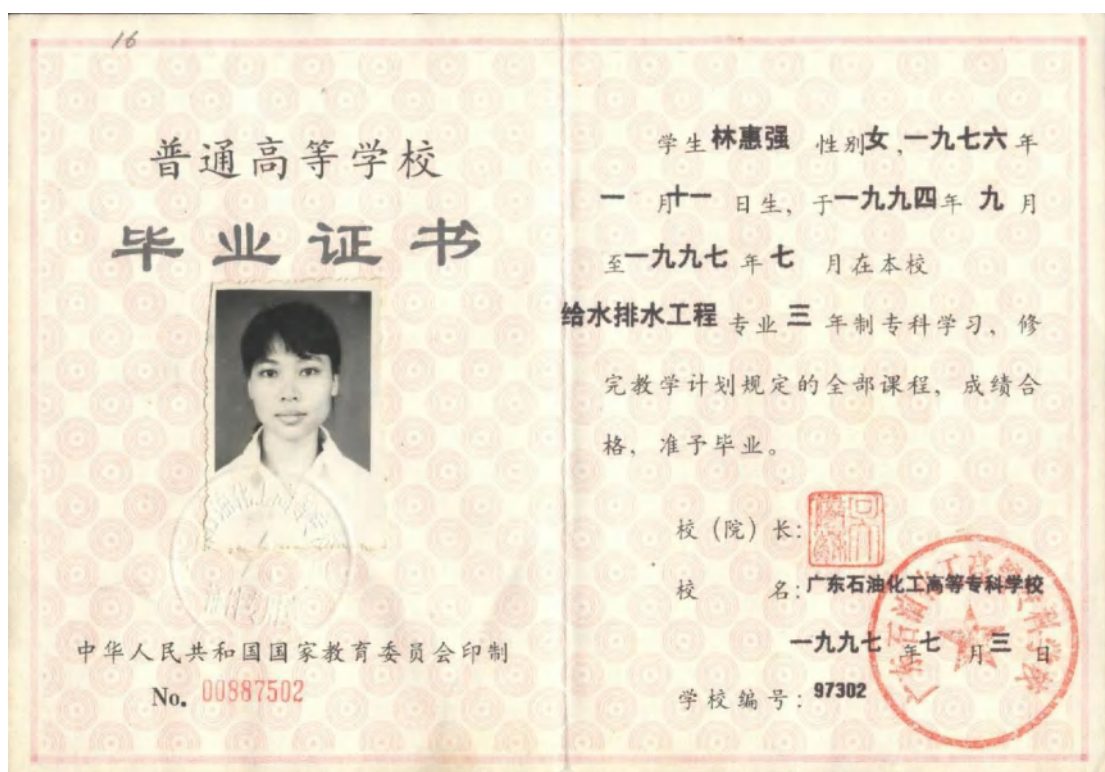 16
普通高等学校
毕业证书
中华人民共和国国家教育委员会印制
No. 00887502
学生林惠强 性别女,一九七六年
一月十一日生,于一九九四年九月
至一九九七年七月在本校
给水排水工程专业三年制专科学习,修
完教学计划规定的全部课程,成绩合
格,准予毕业。
校(院)长:
校 名:广东石油化工高等专科学校
一九九七年七月三日
学校编号:97302
广东石油化工高等专科学校